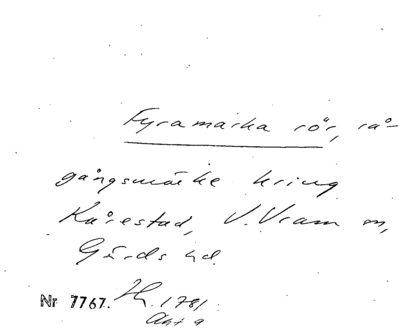 Fyramarka rör, rå-
gångsmärke kring
Kårestad, V. Vram sn,
Gärds hd.
Nr 7767. Hh. 1781
Akt 9